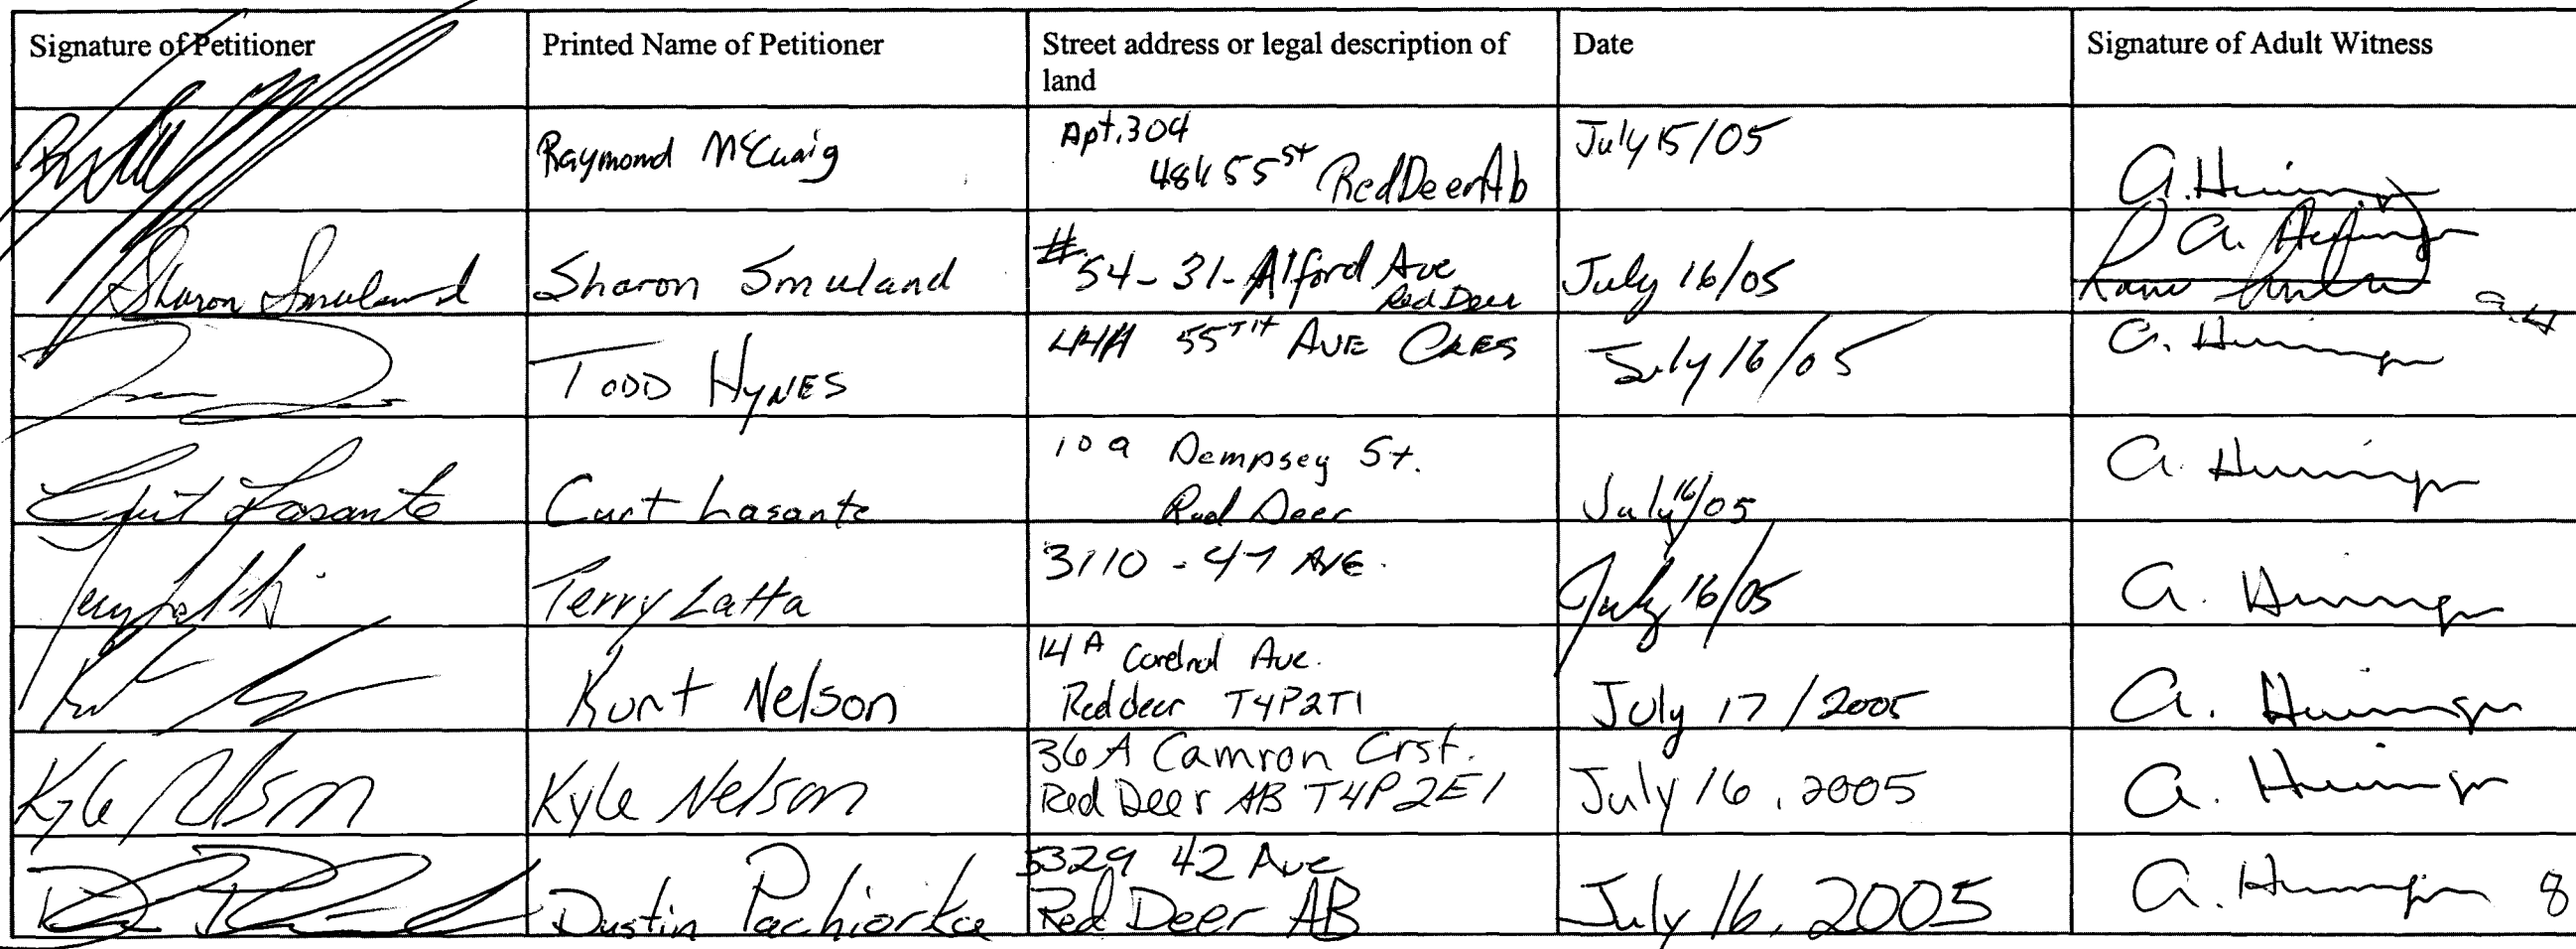 Signature of Petitioner
Printed Name of Petitioner
Street address or legal description of
land
Date
Signature of Adult Witness
Raymond McCuaig
Apt. 304
55 St Red Deer Ab
July 15/05
A.
Sharon Smuland
Sharon Smuland
#54-31-Alford Ave
Red Deer
July 16/05
A.
A.H
TODD HYNES
55TH AVE CRES
July 16/05
A.
Curt Lasante
Curt Lasante
109 Dempsey St.
Red Deer
July 16/05
A.
Terry Latta
3110 - 47 AVE.
July 16/05
A.
Kurt
Kurt Nelson
14A Ave.
Red deer T4P2T1
July 17/2005
A.
Kyle Nelson
Kyle Nelson
36A Camron Crst.
Red Deer AB T4P2E1
July 16, 2005
A.
Dustin Pachiorka
5329 42 Ave
Red Deer AB
July 16, 2005
A.
8